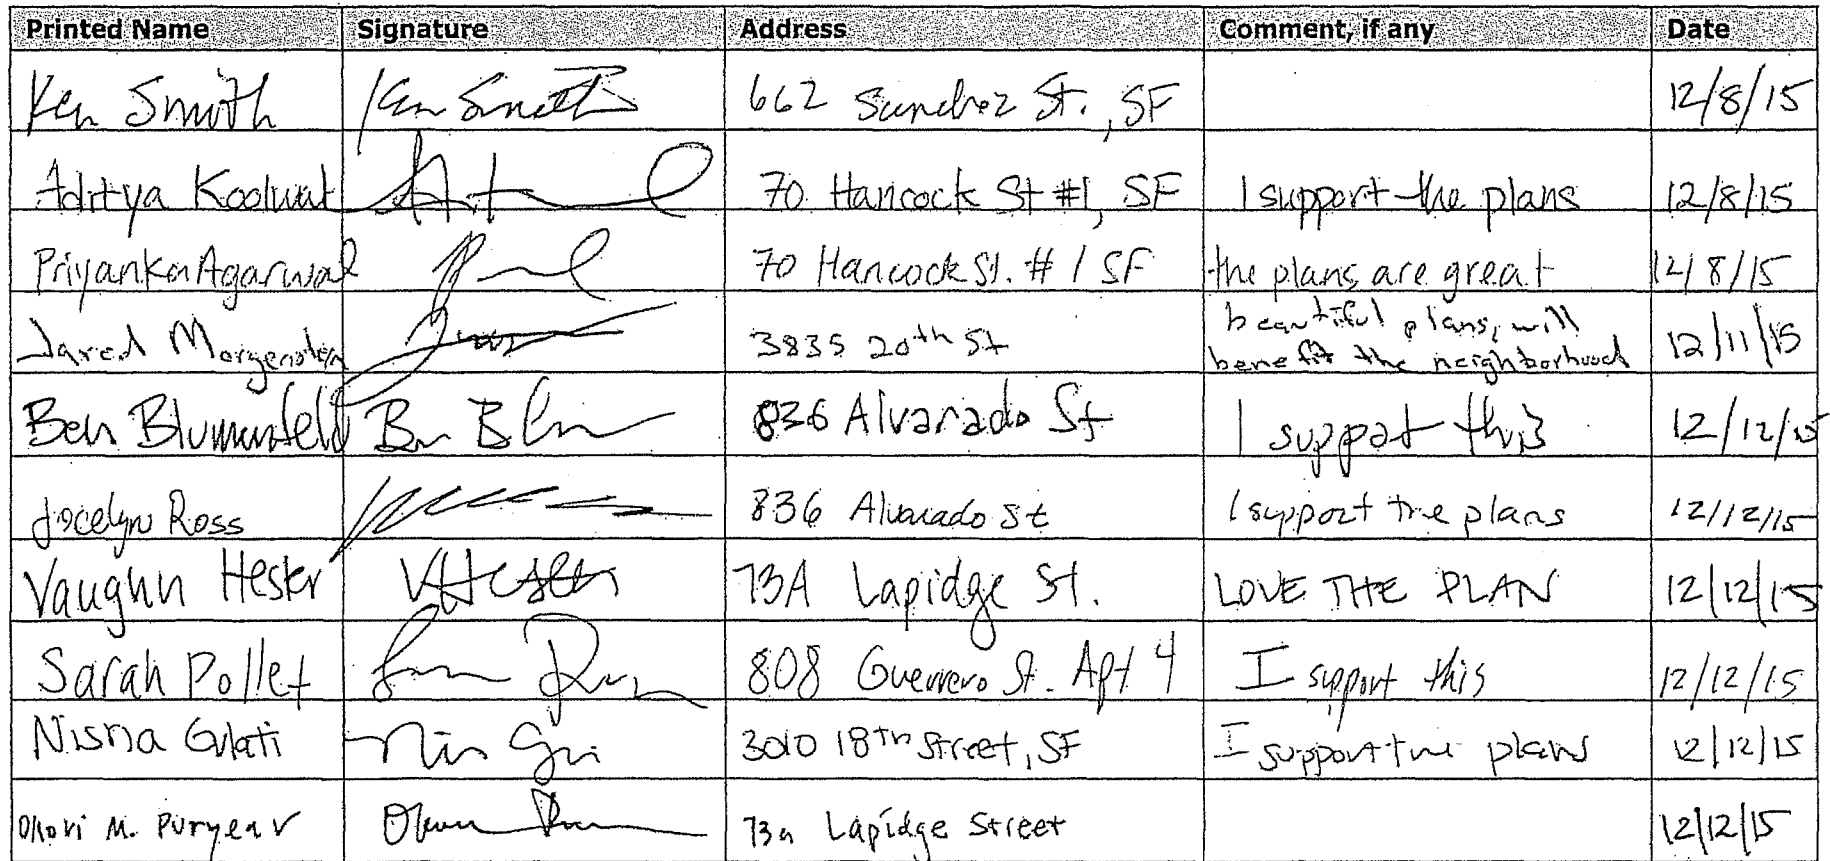 Printed Name Signature Address Comment, if any Date
Ken Smith Ken Smith 662 Sanchez St., SF 12/8/15
Aditya Koolwal 70 Hancock St #1, SF I support the plans 12/8/15
Priyanka Agarwal 70 Hancock St. #1 SF the plans are great 12/8/15
Jared Morgenstern 3835 20th St beautiful plans, will
benefit the neighborhood 12/11/15
Ben Blumenfeld 836 Alvarado St I support this 12/12/15
Jocelyn Ross 836 Alvarado St I support the plans 12/12/15
Vaughn Hester VHester 73A Lapidge St. LOVE THE PLAN 12/12/15
Sarah Pollet 808 Guerrero St. Apt 4 I support this 12/12/15
Nisha Gulati 3010 18th Street, SF I support the plans 12/12/15
M. Puryear 73a Lapidge Street 12/12/15